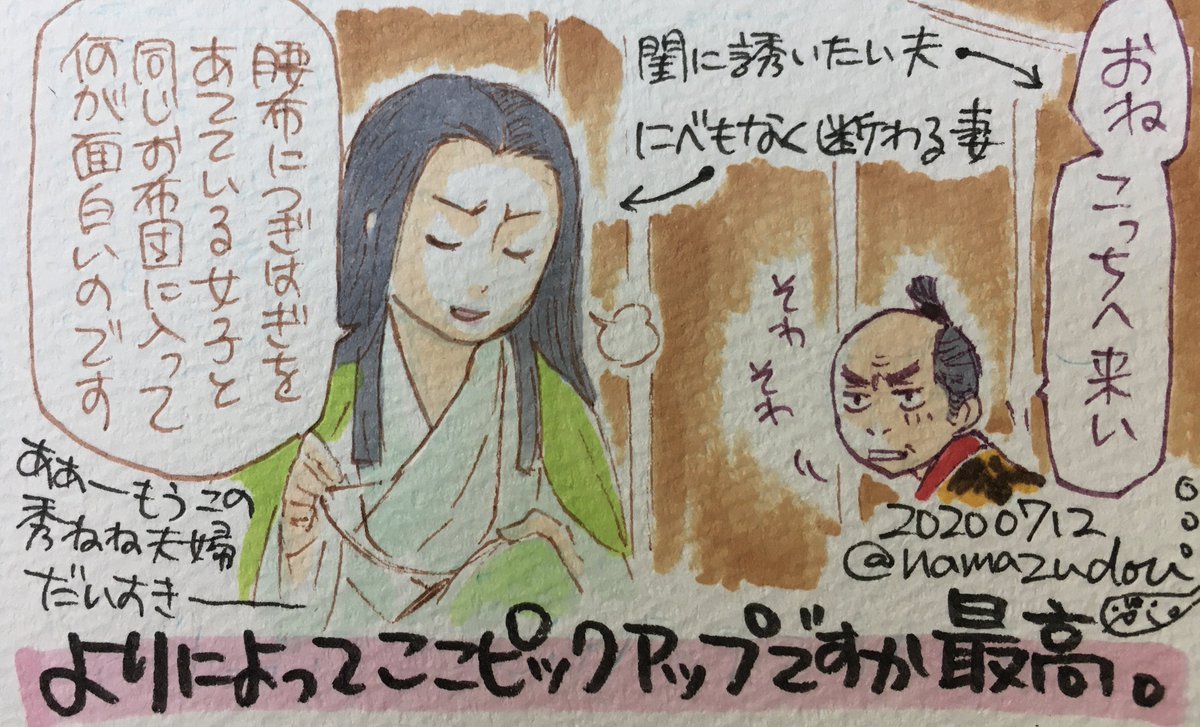 おね
こっちへ来い
閨に誘いたい夫
にべもなく断わる妻
腰布につぎはぎを
あてている女子と
同じお布団に入って
何が面白いのです
そわ
そわ
ああーもうこの
秀ねね夫婦
だいすき――
20200712
@namazudori
よりによってここピックアップですか最高。